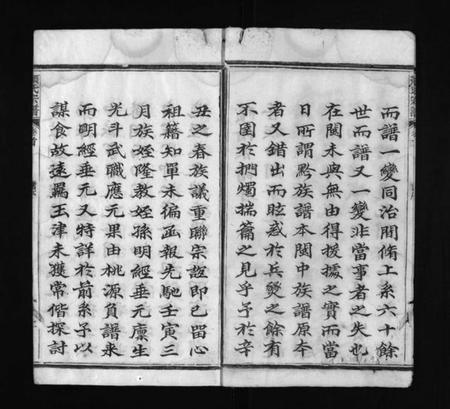 而譜一變同治間脩上系六十餘
世而譜又一變非當事者之失也
在閩未與無由得援據之實而當
日所謂黔族譜本閩中族譜原本
者又錯出而眩惑於兵燹之餘有
不囿於捫燭揣籥之見乎予於辛
丑之春族議重聯宗誼即已留心
祖籍知單未徧函報先馳壬寅三
月族姪隆教姪孫明經垂元廩生
光斗武職應元果由桃源負譜來
而明經垂元又特詳於前系予以
謀食故遠羈玉津未獲常偕探討